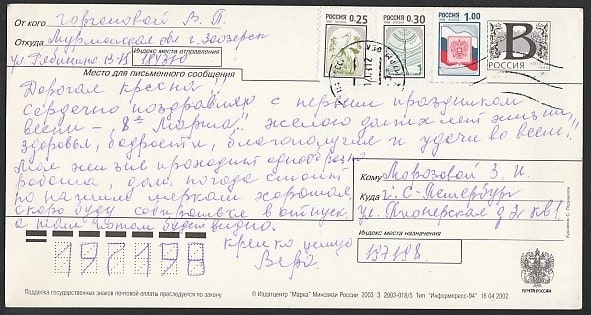 От кого Горгоновой В. П.
Откуда Мурманская обл г. Заозерск
Индекс места отправления
184310
Место для письменного сообщения
Дорогая кресна,
сердечно поздравляю с первым праздником
весны – 8е Марта! желаю долгих лет жизни,
здоровья, бодрости, благополучия и удачи во всем!
Моя жизнь проходит однообразно
работа, дом, погода стоит
по нашим меркам хорошая,
скоро буду собираться в отпуск,
а там потом будет видно.
крепко целую
Вера.
РОССИЯ 0.25
РОССИЯ 0.30
РОССИЯ 1.00
В
РОССИЯ
Кому Морозовой З. И.
Куда г. С-Петербург
ул. Пионерская д 2 кв 1.
Индекс места назначения
197198
197198
ПОЧТА РОССИИ
Подделка государственных знаков почтовой оплаты преследуется по закону
© Издатцентр "Марка" Минсвязи России 2003 З. 2003-018/5 Тип "Информпресс-94" 16 04 2002